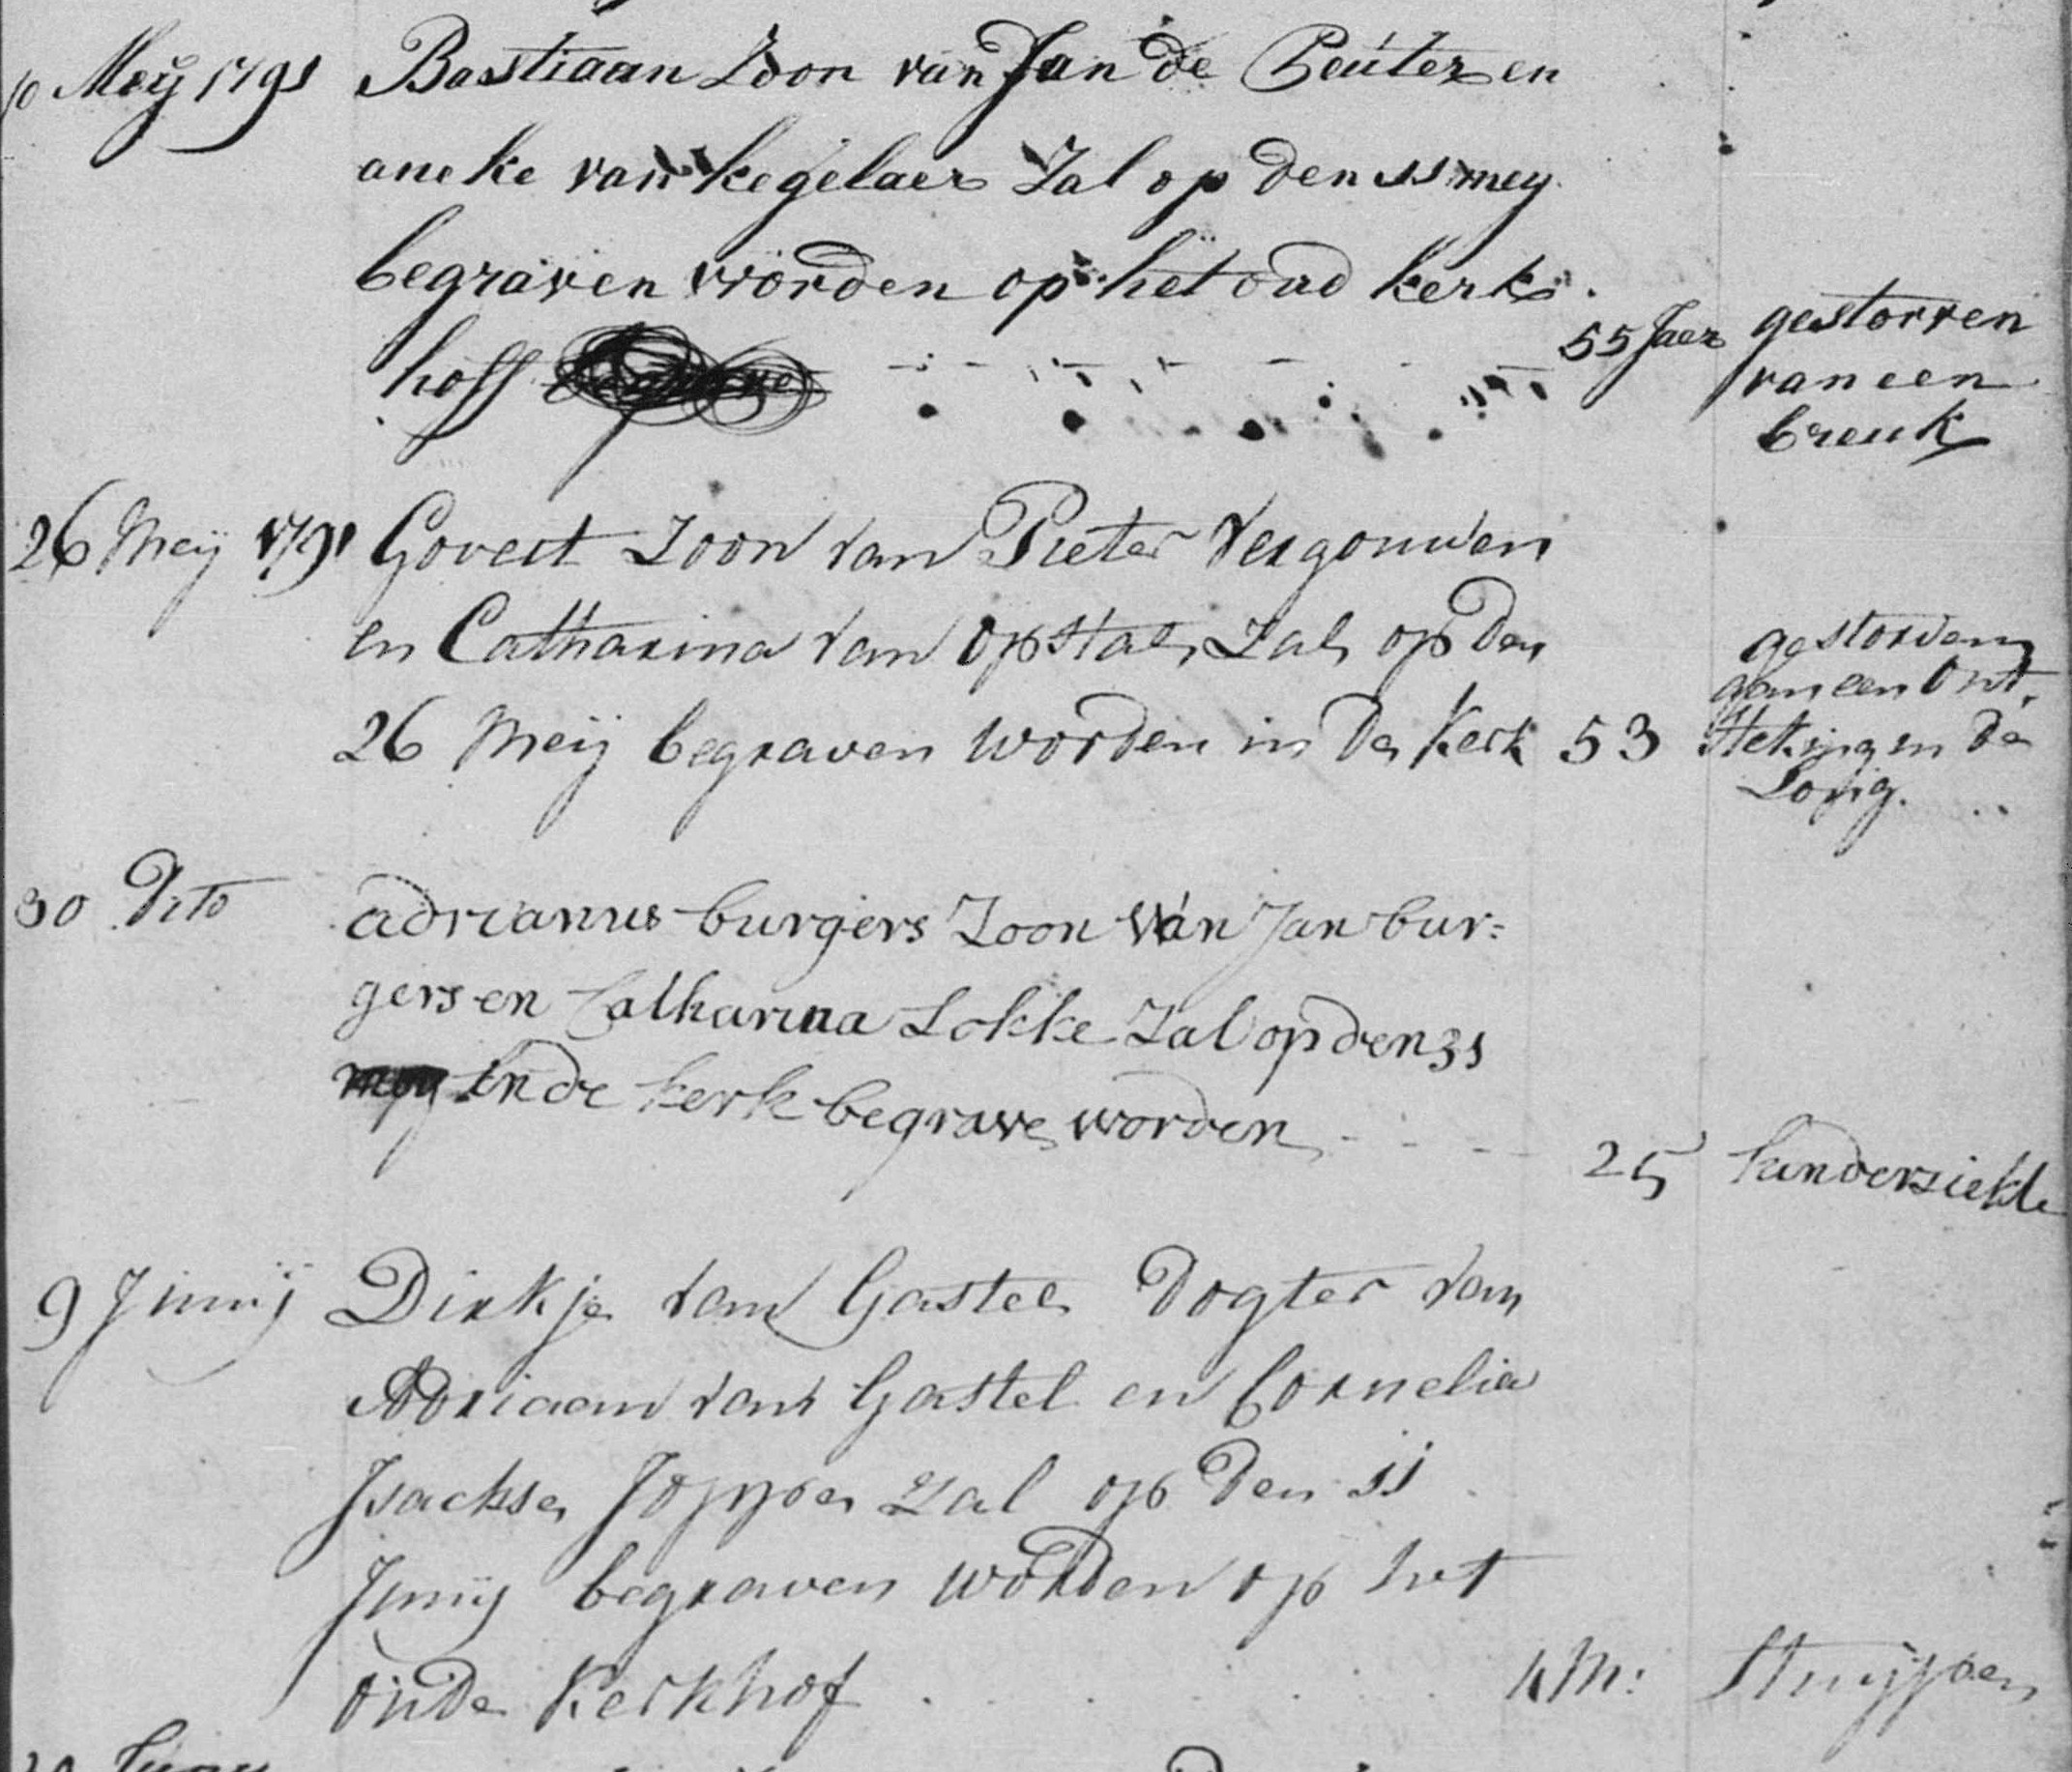 10 Meÿ 1791 Bastiaan Zoon van Jan de Peúter en
aneke van kegelaer Zal op den 11 mey
begraven worden op het oud kerk
hoff 55 Jaer gestorven
van een
breuk
26 Meij 1791 Govert Zoon van Pieter Vergouwen
en Catharina van Opstal, Zal op den
26 Meij begraven worden in de Kerk 53
gestorven
aan een Ont,
steking in de
Long.
30 Dito adrianus burgers Zoon van Jan bur=
gers en Catharina Lokke Zal op den 31
mey in de kerk begrave worden 25 kinderziekte
9 Junij Dirkje van Gastel Dogter van
Adriaan van Gastel en Cornelia
Isackse Joppe Zal op den 11
Junij begraven worden op het
oude Kerkhof M: Stuijpen